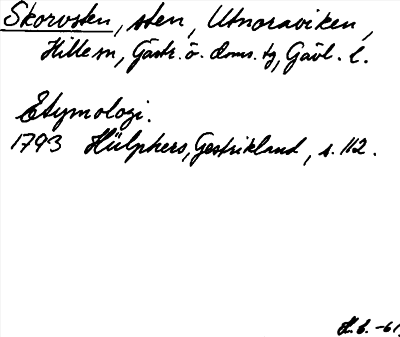 Skorvsten, sten, Utnoraviken,
Hille sn, Gästr. ö. doms. tg, Gävl. l.
Etymologi.
1793 Hülphers, Gestrikland, s. 112.
H. b. -61.